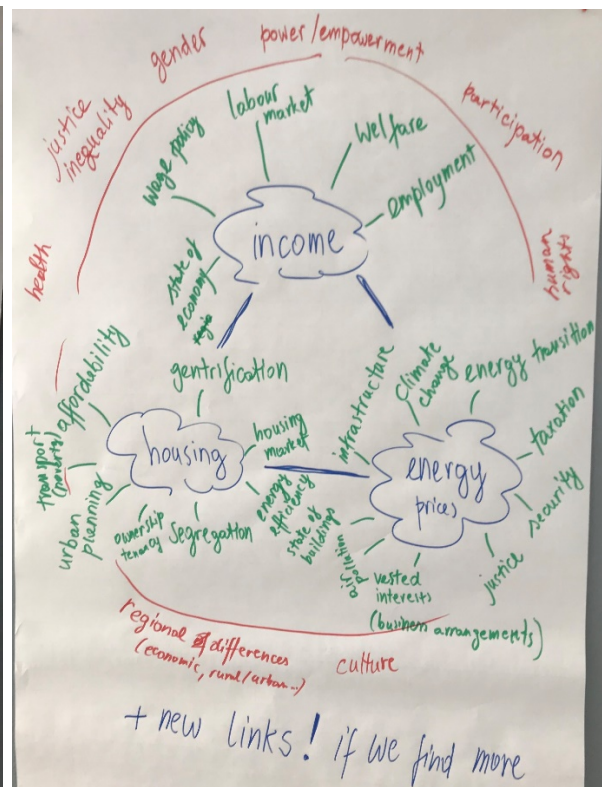 gender
power/empowerment
justice
inequality
participation
health
human
rights
labour
market
wage policy
welfare
employment
state of
economy
income
gentrification
affordability
transport
(poverty)
urban
planning
ownership
tenancy
segregation
housing
market
energy
efficiency
state of
buildings
housing
infrastructure
climate
change
energy transition
taxation
security
justice
vested
interests
(business arrangements)
air
pollution
energy
prices
regional differences
(economic, rural/urban...)
culture
+ new links! if we find more